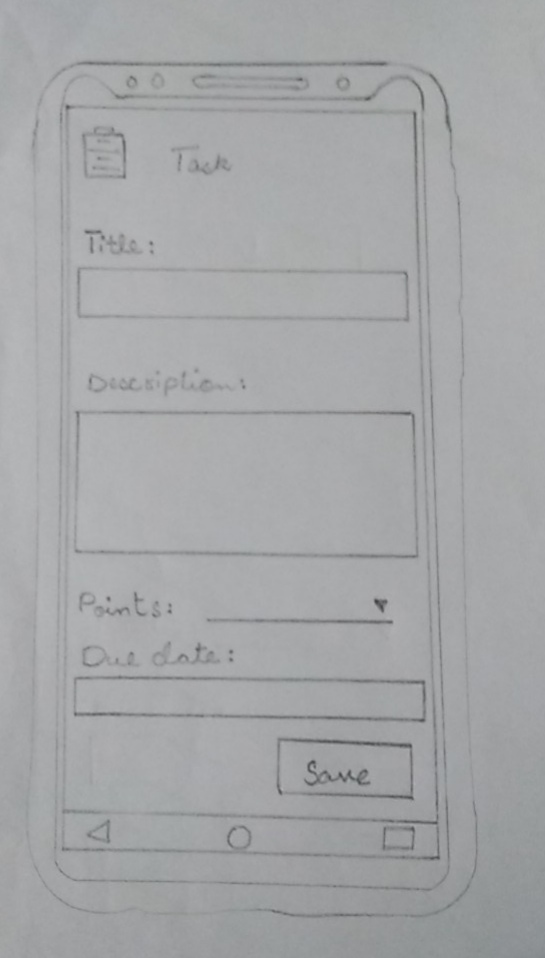 Task
Title:
Description:
Points:
Due date:
Save